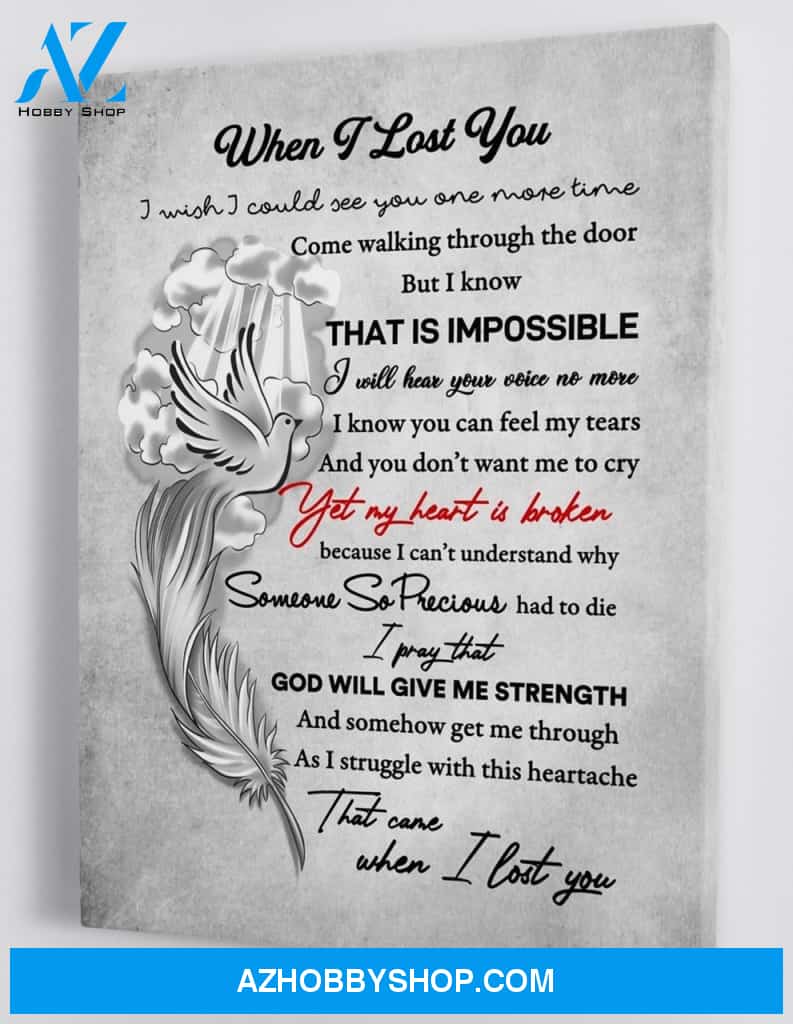 AZ
HOBBY SHOP
When I Lost You
I wish I could see you one more time
Come walking through the door
But I know
THAT IS IMPOSSIBLE
I will hear your voice no more
I know you can feel my tears
And you don't want me to cry
Yet my heart is broken
because I can't understand why
Someone So Precious had to die
I pray that
GOD WILL GIVE ME STRENGTH
And somehow get me through
As I struggle with this heartache
That came
when I lost you
AZHOBBYSHOP.COM